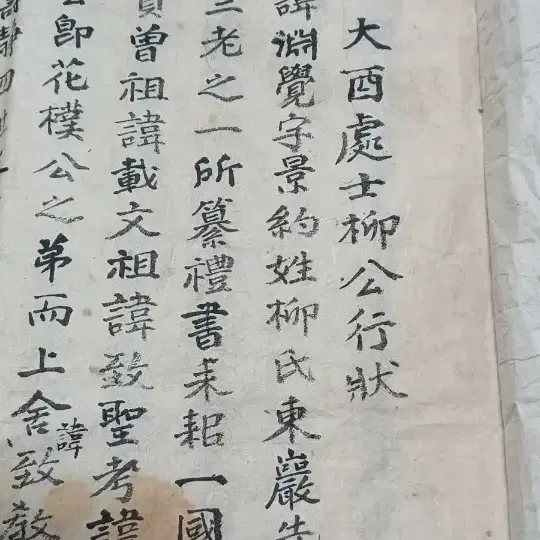 大酉處士柳公行狀
諱淵覺字景約姓柳氏東巖先
三老之一所纂禮書耒耜一國
曾祖諱載文祖諱致聖考諱
卽花樸公之弟而上舍諱致敎